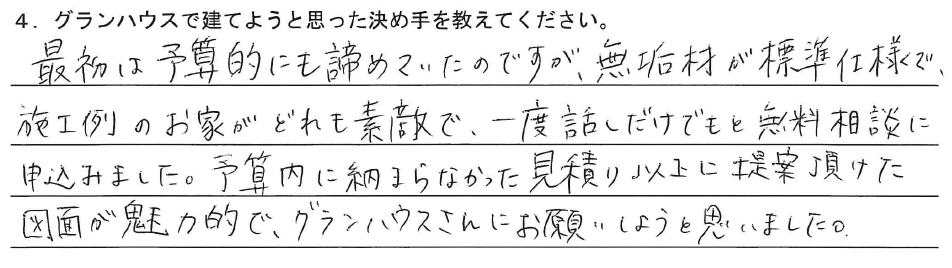 ４．グランハウスで建てようと思った決め手を教えてください。
最初は予算的にも諦めていたのですが、無垢材が標準仕様で、
施工例のお家がどれも素敵で、一度話しだけでもと無料相談に
申込みました。予算内に納まらなかった見積り以上に提案頂けた
図面が魅力的で、グランハウスさんにお願いしようと思いました。